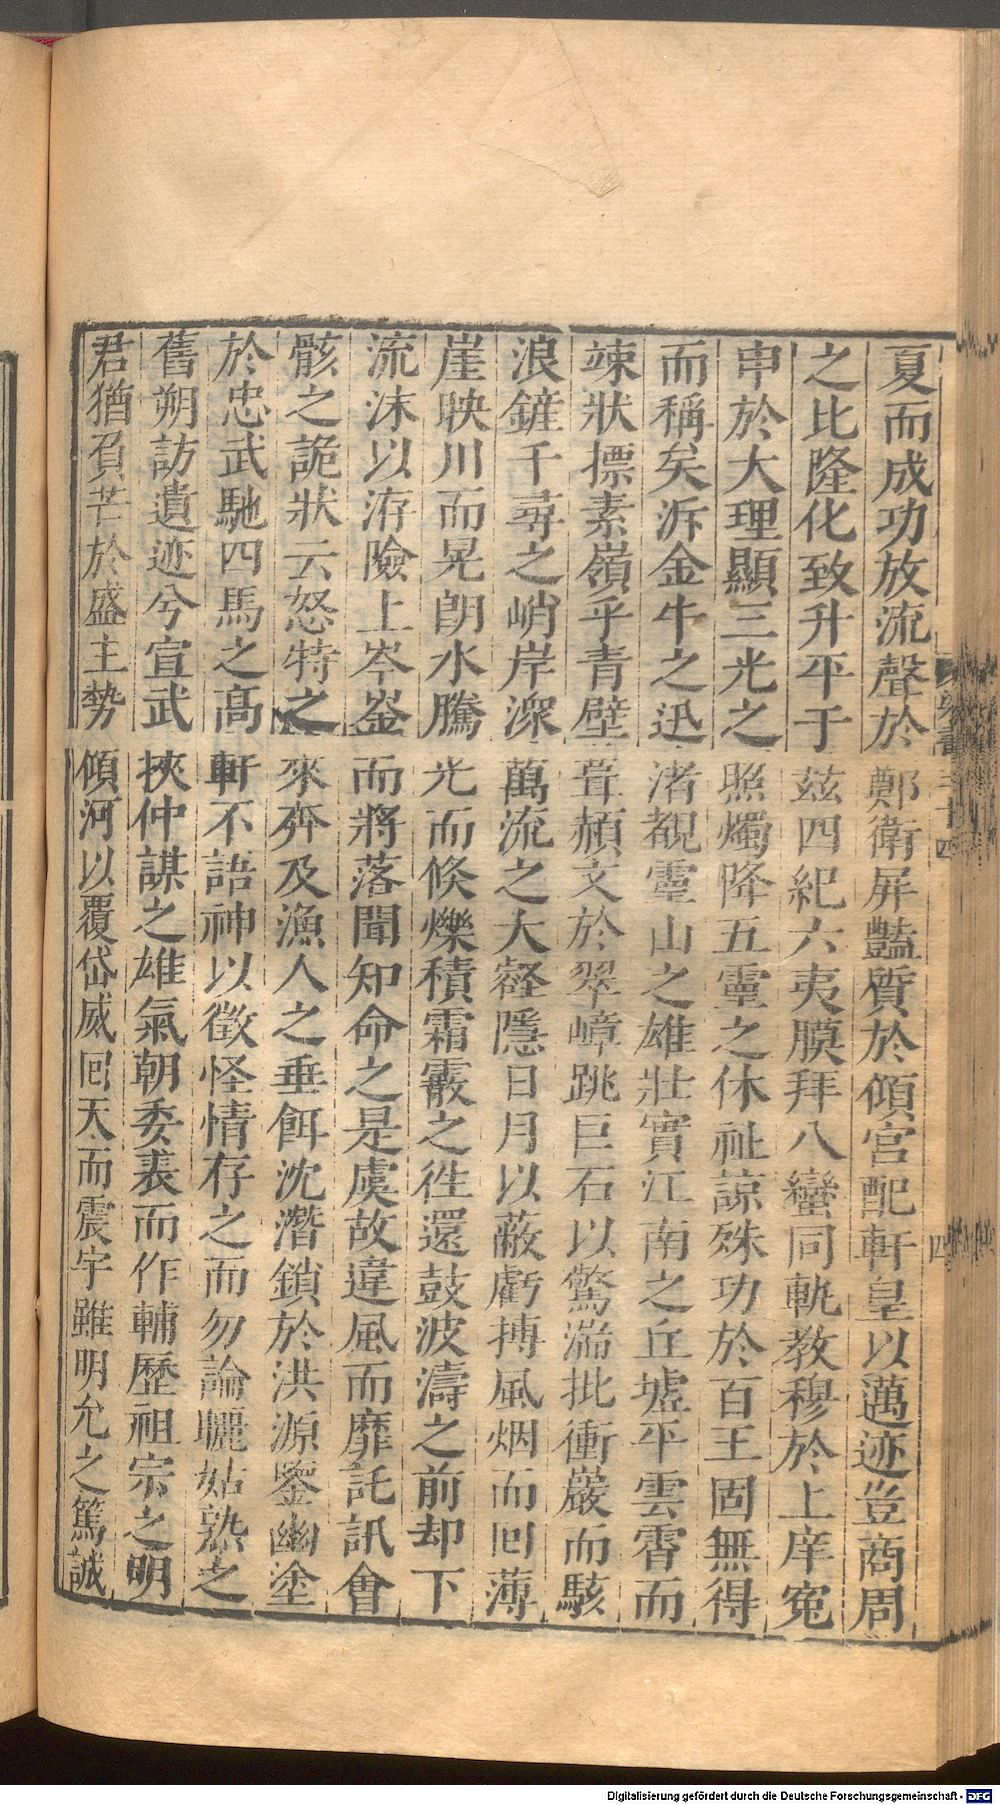 夏而成功放流聲於鄭衛屏豔質於傾宮配軒皇以邁迹豈商周
之比隆化致升平于茲四紀六夷膜拜八蠻同軌教穆於上庠寃
申於大理顯三光之照燭降五靈之休祉諒殊功於百王固無得
而稱矣泝金牛之迅渚覩靈山之雄壯實江南之丘墟平雲霄而
竦狀摽素嶺乎青壁葺頳文於翠嶂跳巨石以驚湍批衝巖而駭
浪鏟千尋之峭岸㵗萬流之大壑隱日月以蔽虧摶風烟而回薄
崖映川而晃朗水騰光而倏爍積霜霰之往還鼓波濤之前却下
流沫以洊險上岑崟而將落聞知命之是虞故違風而靡託訊會
骸之詭狀云怒特之來奔及漁人之垂餌沈潛鎖於洪源鑒幽塗
於忠武馳四馬之高軒不語神以徵怪情存之而勿論曬姑熟之
舊朔訪遺迹兮宣武挾仲謀之雄氣朝委裘而作輔歷祖宗之明
君猶負芒於盛主勢傾河以覆岱威回天而震宇雖明允之篤誠
梁書三十四
四
Digitalisierung gefördert durch die Deutsche Forschungsgemeinschaft - DFG